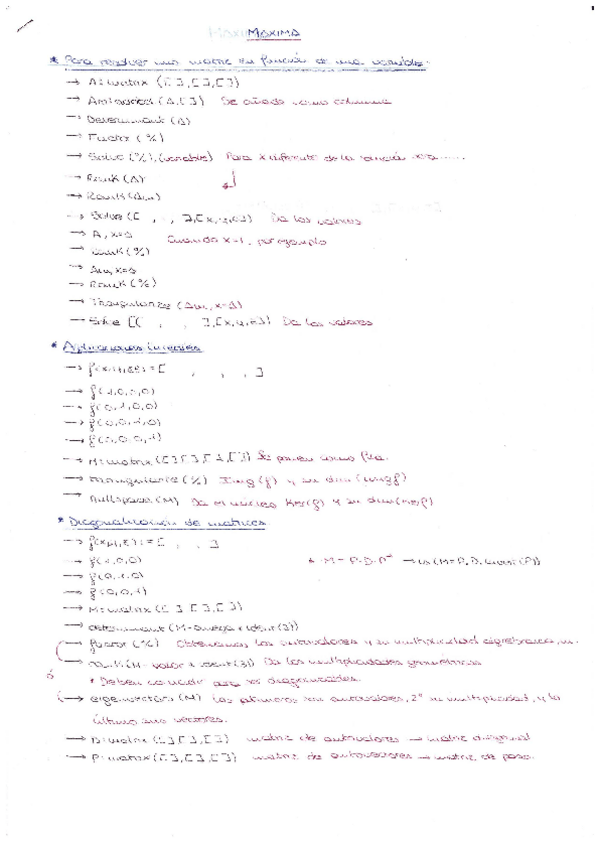 MAXIMA
* Para resolver una matriz en función de una variable.
→ A: matrix ([ ],[ ],[ ])
→ Am: addcol (A,[ ]) Se añade como columna
→ Determinant (A)
→ Factor (%)
→ Solve (%), (variable) Para x diferente de la solución x=a......
→ Rank (A)
→ Rank (Am)
→ Solve ([ , , ],[x,y,z]) Da los valores
→ A, x=1 Cuando x=1, por ejemplo
→ Rank (%)
→ Am, x=1
→ Rank (%)
→ Triangularize (Am, x=1)
→ Solve [( , , ],[x,y,z]) Da los valores
* Aplicaciones lineales
→ := [ , , , ]
→ f(1,0,0,0)
→ f(0,1,0,0)
→ f(0,0,1,0)
→ f(0,0,0,1)
→ M: matrix ([ ],[ ],[ ],[ ]) Se ponen como fila.
→ triangularize (%) Img(f) y su dim (img f)
→ nullspace (M) Da el núcleo Ker(f) y su dim (ker f)
* Diagonalización de matrices
→ f(x,y,z) := [ , , ]
→ f(1,0,0) * M = P·D·P⁻¹ → (M=P.D.invert(P))
→ f(0,1,0)
→ f(0,0,1)
→ M: matrix ([ ],[ ],[ ])
→ determinant (M-omega*ident(3))
→ factor (%) Obtenemos los autovalores y su multiplicidad algebraica, m.
→ rank (M- valor * ident(3)) Da las multiplicidades geométricas
ó * Deben coincidir para ser diagonizables.
→ eigenvectors (M) Los primeros son autovalores, 2º su multiplicidad, y lo
último sus vectores.
→ D: matrix ([ ],[ ],[ ]) matriz de autovalores → matriz diagonal
→ P: matrix ([ ],[ ],[ ]) matriz de autovectores → matriz de paso.